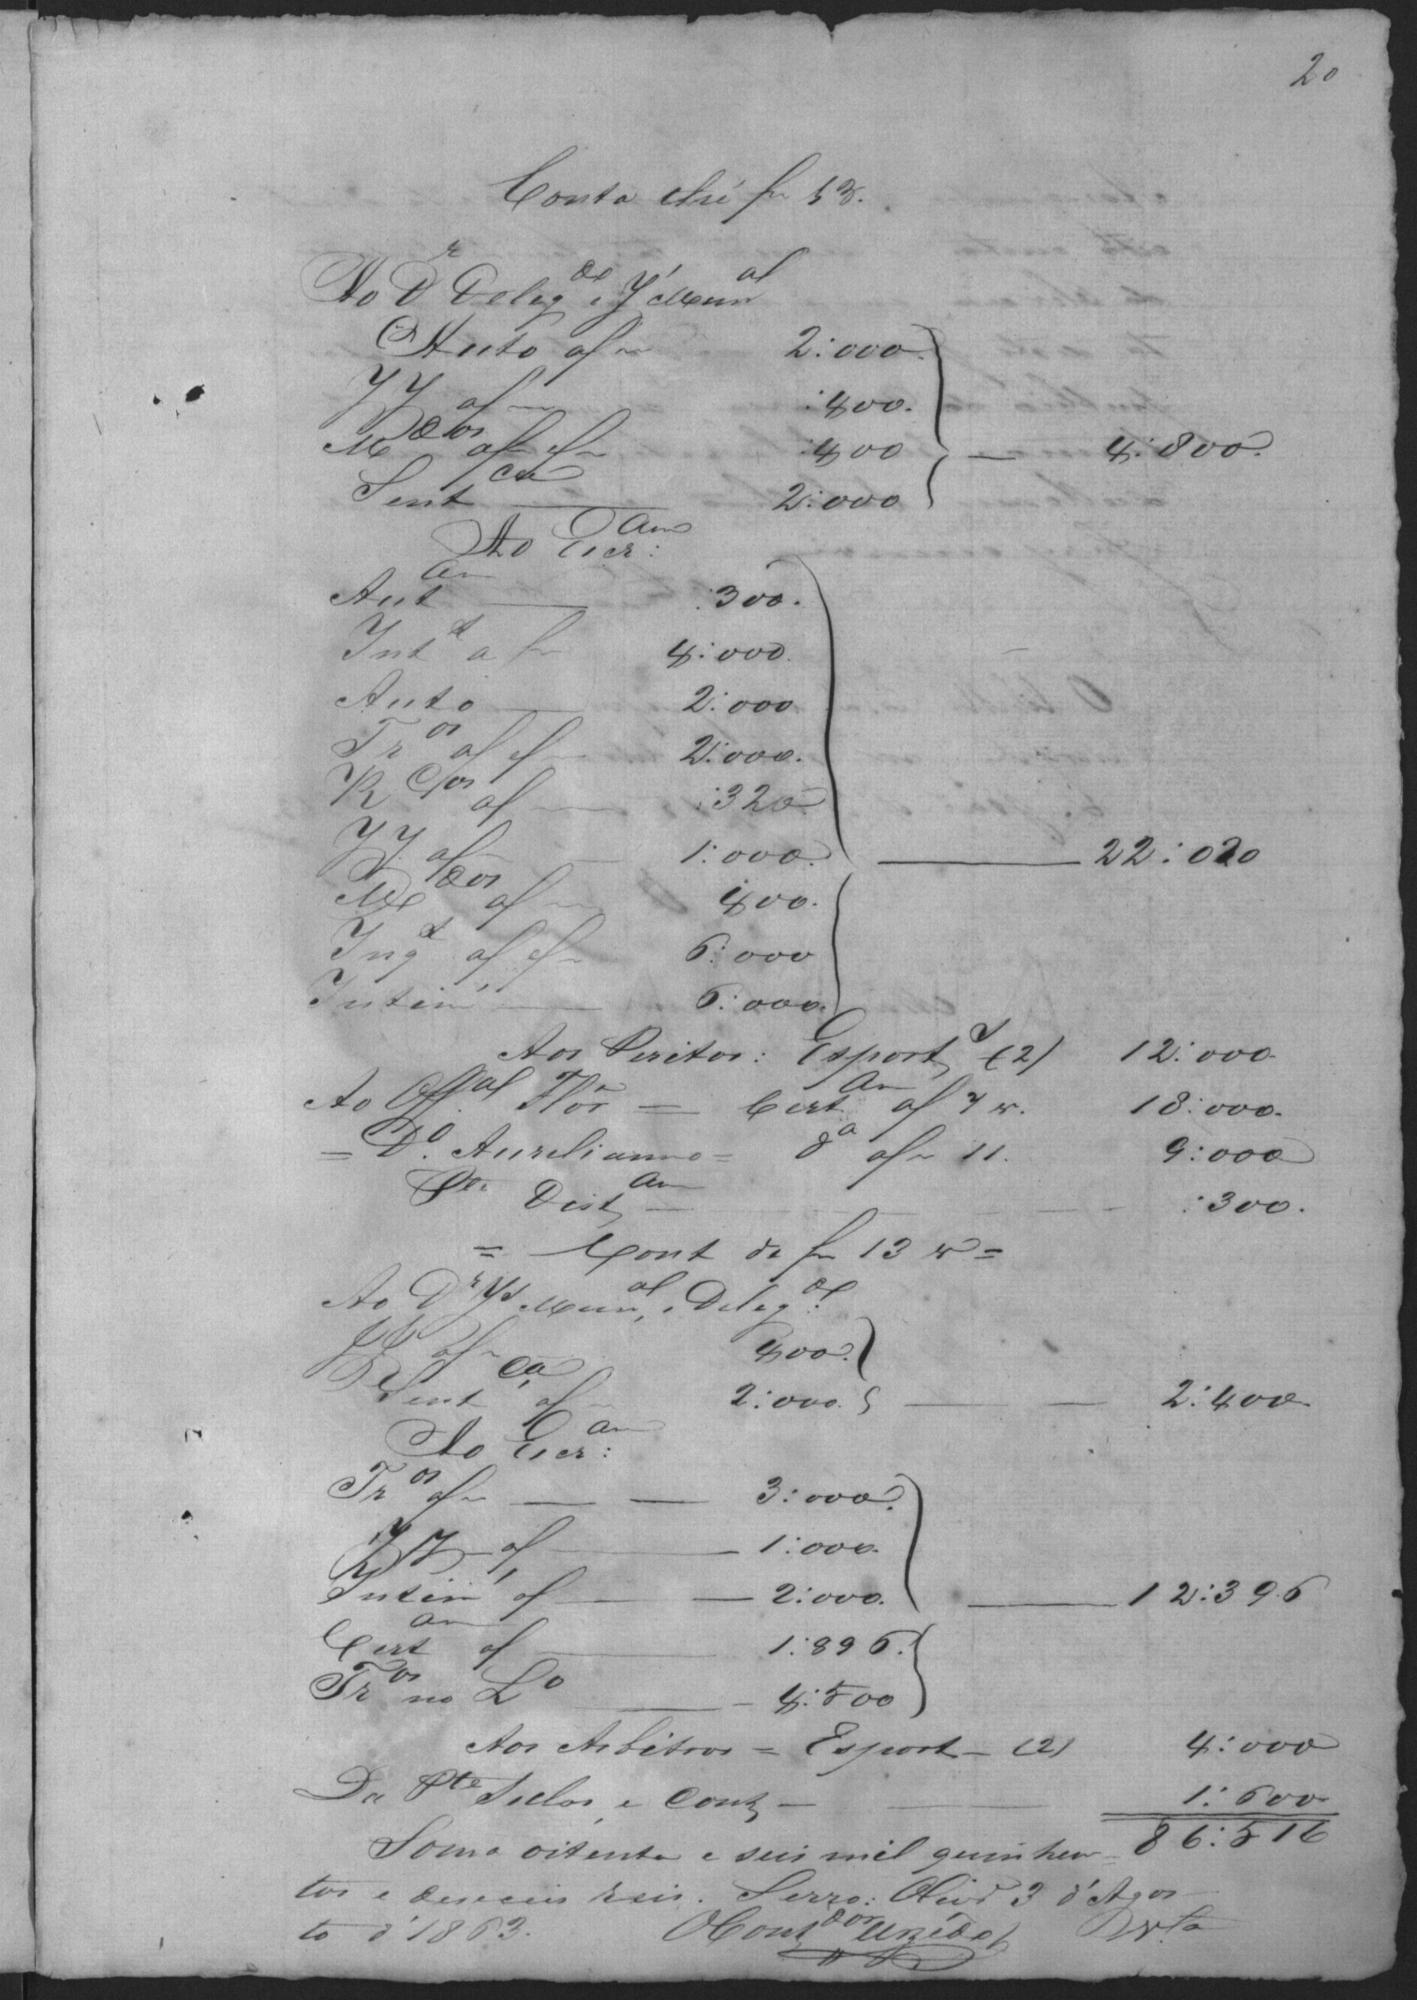 20
Conta athé fs 13.
Ao Dr Delegde e J Munal
Auto af 2:000.
JJ af :400.
Mdos af fs :400 — 4:800.
Sentca 2:000
Ao Escram:
Autam :300.
Intt a fs 4:000.
Auto 2:000
Tros af fs 2:000.
R af :320
JJ af 1:000. — 22:020
Mdos af 400.
Inqt af fs 6:000
Intim 6:000.
Aos Peritos: Esport (2) 12:000
Ao Offal Flor = Certam af 7 v. 18:000.
= Do. Aurelianno = da afs 11. 9:000
Pte Distam — :300.
= Cont de fs 13 v =
Ao Dr Js Munal, e Delegde:
JJ afs 400.
Sentca af 2:000. — 2:400
Ao Escram:
Tros afs — 3:000.
JJ af — 1:000.
Intim af — 2:000. — 12:396
Certam af — 1:896.
Tros no Lo — 4:500
Aos Arbitros = Esport — (2) 4:000
Da Pte Sellos, e Cont — 1:600
86:516
Soma oitenta e seis mil quinhen-
tos e deseceis reis. Serro: 3 d'Agos
to d'1863. O Contdor